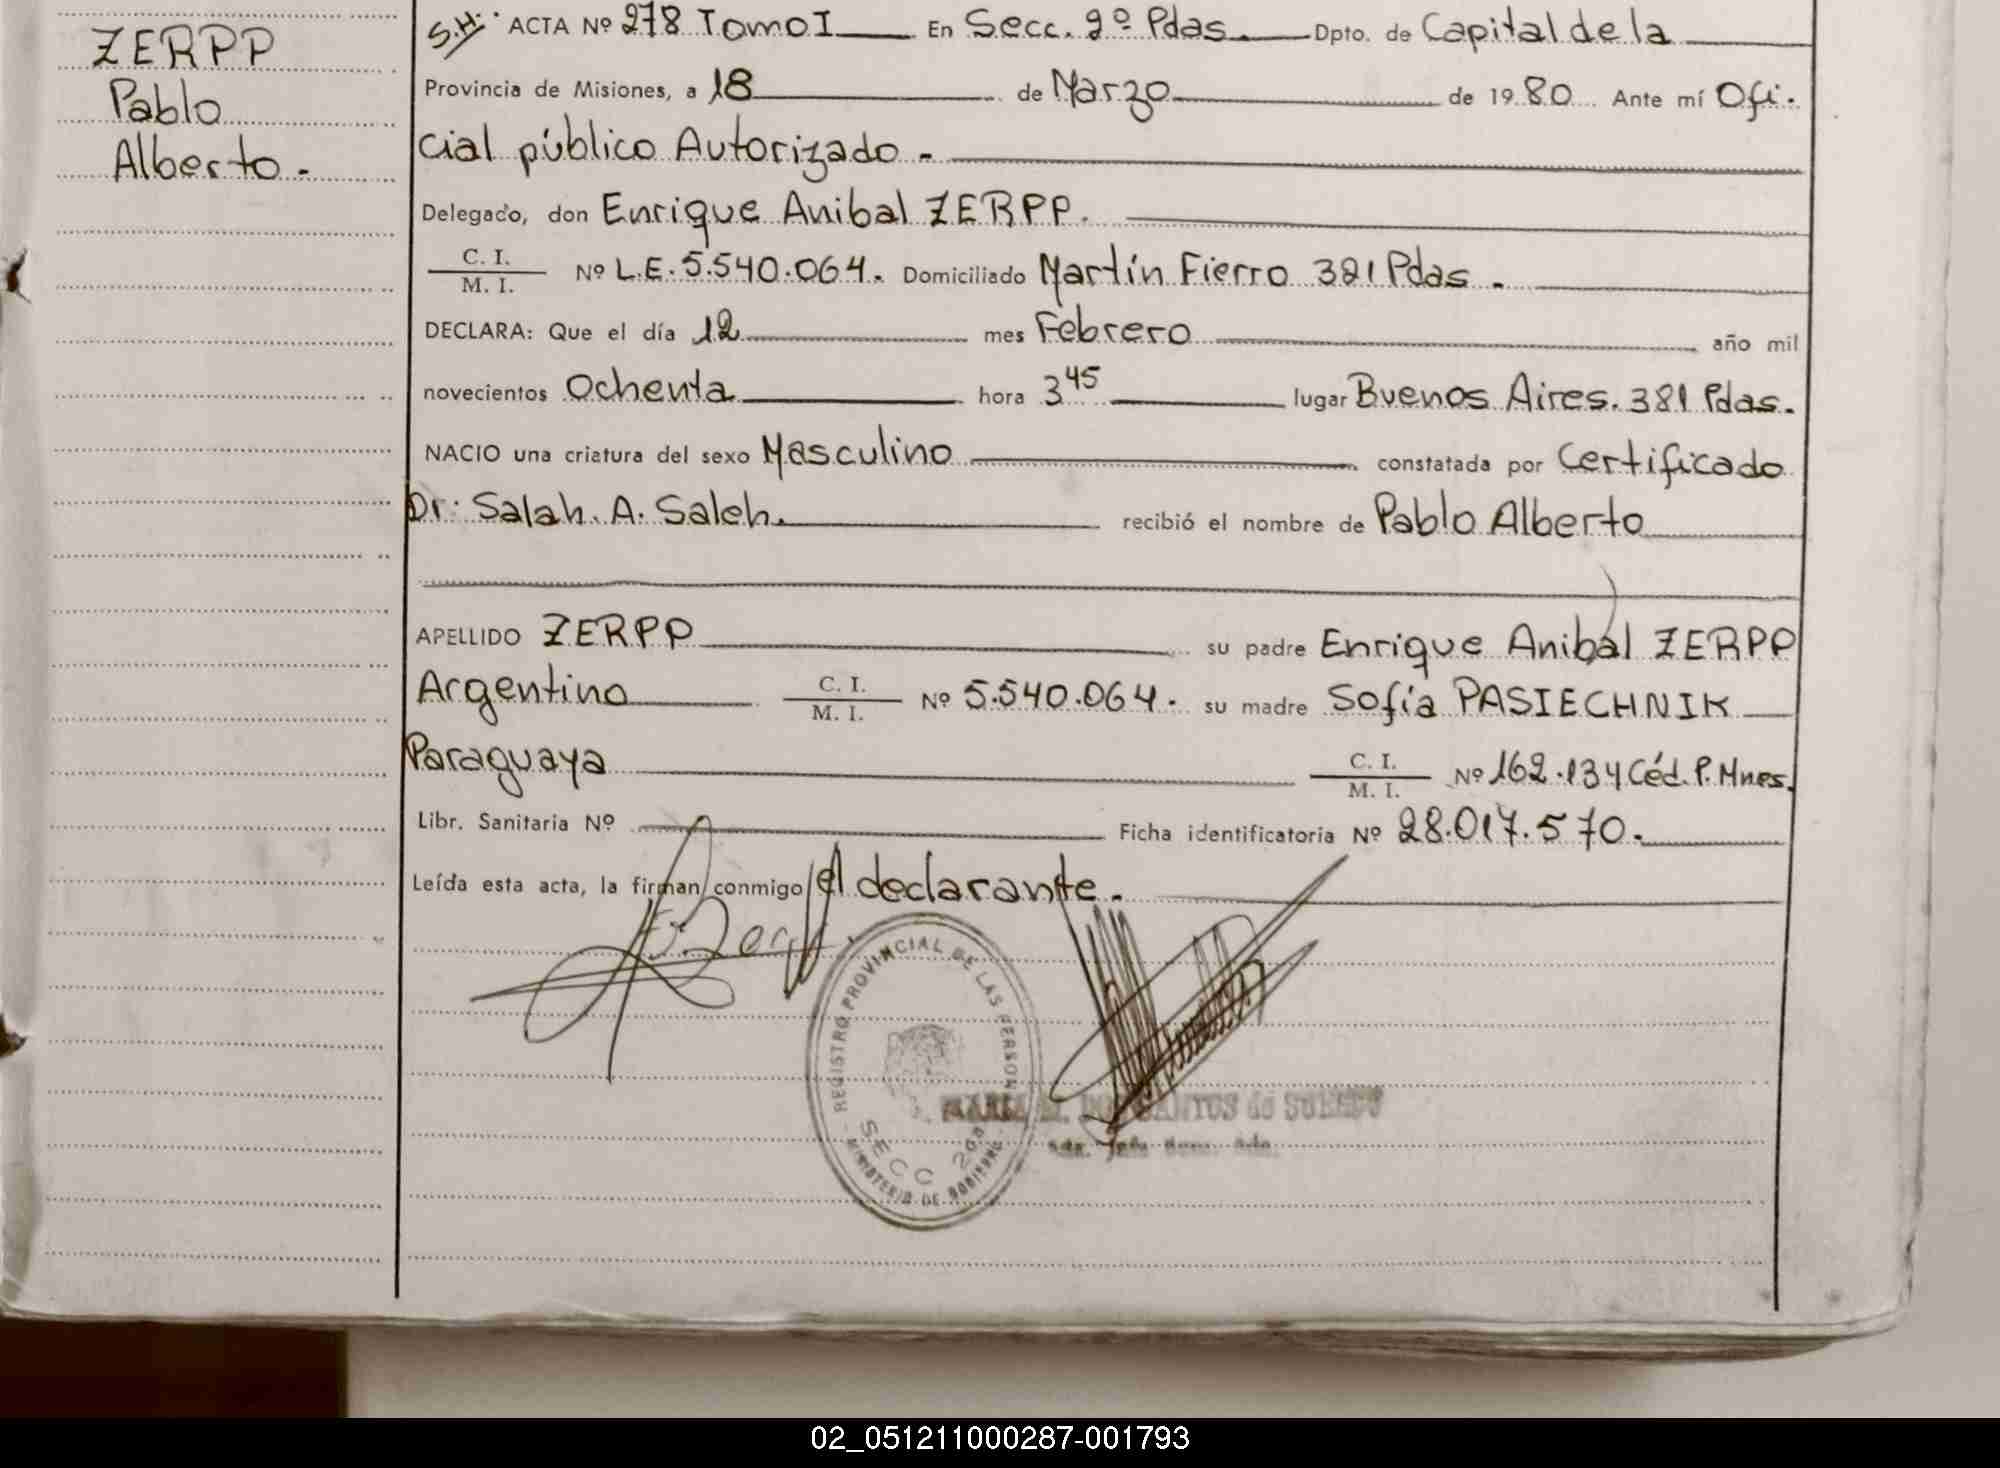 ZERPP
Pablo
Alberto.-
S.H. ACTA Nº 278 Tomo I En Secc. 2º Pdas. Dpto. de Capital de la
Provincia de Misiones, a 18 de Marzo de 1980 Ante mí Ofi.
cial público Autorizado -
Delegado, don Enrique Anibal ZERPP.
C. I.
M. I.
Nº L.E. 5.540.064. Domiciliado Martín Fierro 381 Pdas.
DECLARA: Que el día 12 mes Febrero año mil
novecientos Ochenta hora 3 45 lugar Buenos Aires. 381 Pdas.
NACIO una criatura del sexo Masculino constatada por Certificado
Dr. Salah. A. Saleh. recibió el nombre de Pablo Alberto
APELLIDO ZERPP su padre Enrique Anibal ZERPP
Argentino C. I.
M. I.
Nº 5.540.064. su madre Sofía PASIECHNIK
Paraguaya C. I.
M. I.
Nº 162.134 Céd. P. Mnes.
Libr. Sanitaria Nº Ficha identificatoria Nº 28.017.570.
Leída esta acta, la firman conmigo el declarante.
REGISTRO PROVINCIAL DE LAS PERSONAS
SECC 2da
MINISTERIO DE GOBIERNO
02_051211000287-001793